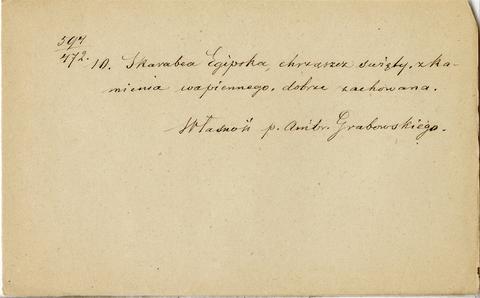 594
472.
10. Skarabea Egipska, chrząszcz święty, z ka-
mienia wapiennego, dobrze zachowana.
Własność p. Ambr. Grabowskiego.